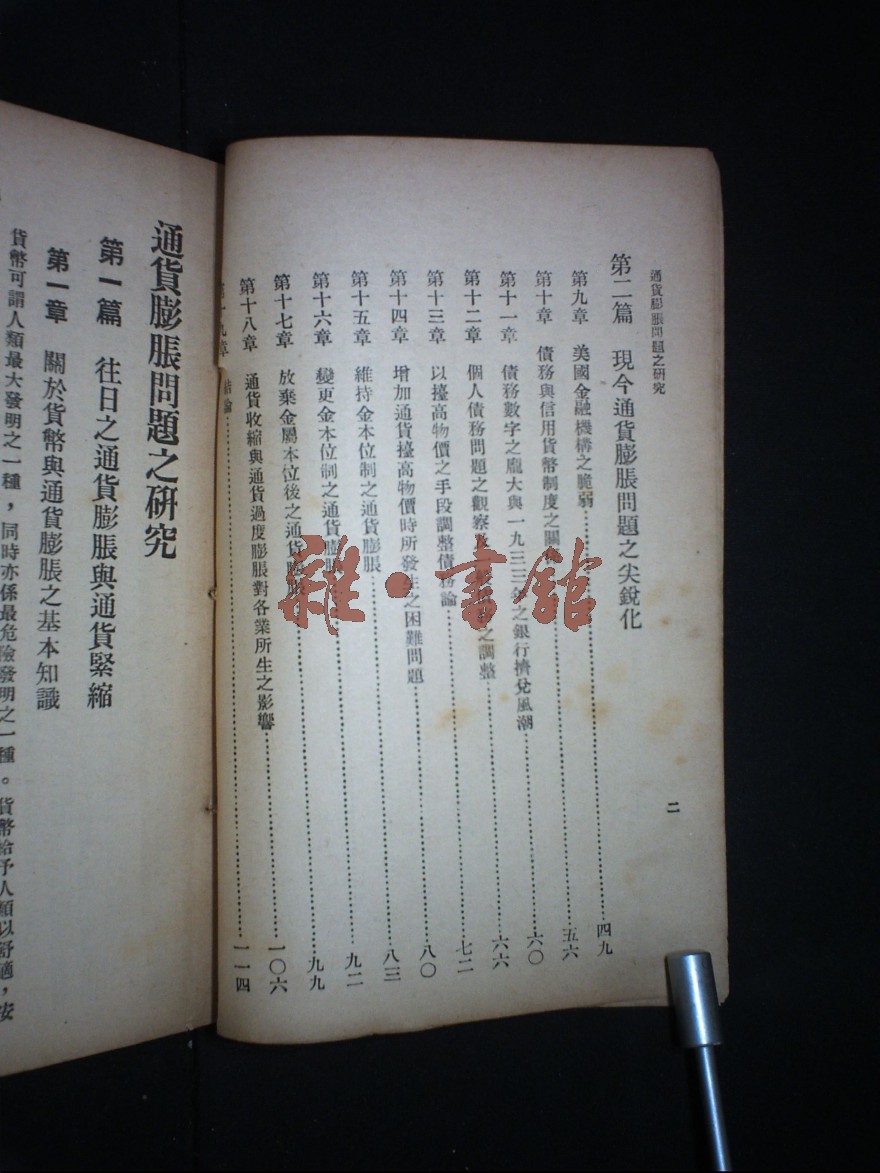 通貨膨脹問題之研究
二
第二篇 現今通貨膨脹問題之尖銳化
第九章 美國金融機構之脆弱……四九
第十章 債務與信用貨幣制度之關……五六
第十一章 債務數字之龐大與一九三三年之銀行擠兌風潮……六〇
第十二章 個人債務問題之觀察及之調整……六六
第十三章 以擡高物價之手段調整債務論……七二
第十四章 增加通貨擡高物價時所發生之困難問題……八〇
第十五章 維持金本位制之通貨膨脹……八三
第十六章 變更金本位制之通貨膨脹……九二
第十七章 放棄金屬本位後之通貨膨脹……九九
第十八章 通貨收縮與通貨過度膨脹對各業所生之影響……一〇六
第十九章 結論……一一四
通貨膨脹問題之研究
第一篇 往日之通貨膨脹與通貨緊縮
第一章 關於貨幣與通貨膨脹之基本知識
貨幣可謂人類最大發明之一種，同時亦係最危險發明之一種。貨幣給予人類以舒適，安
雜·書館